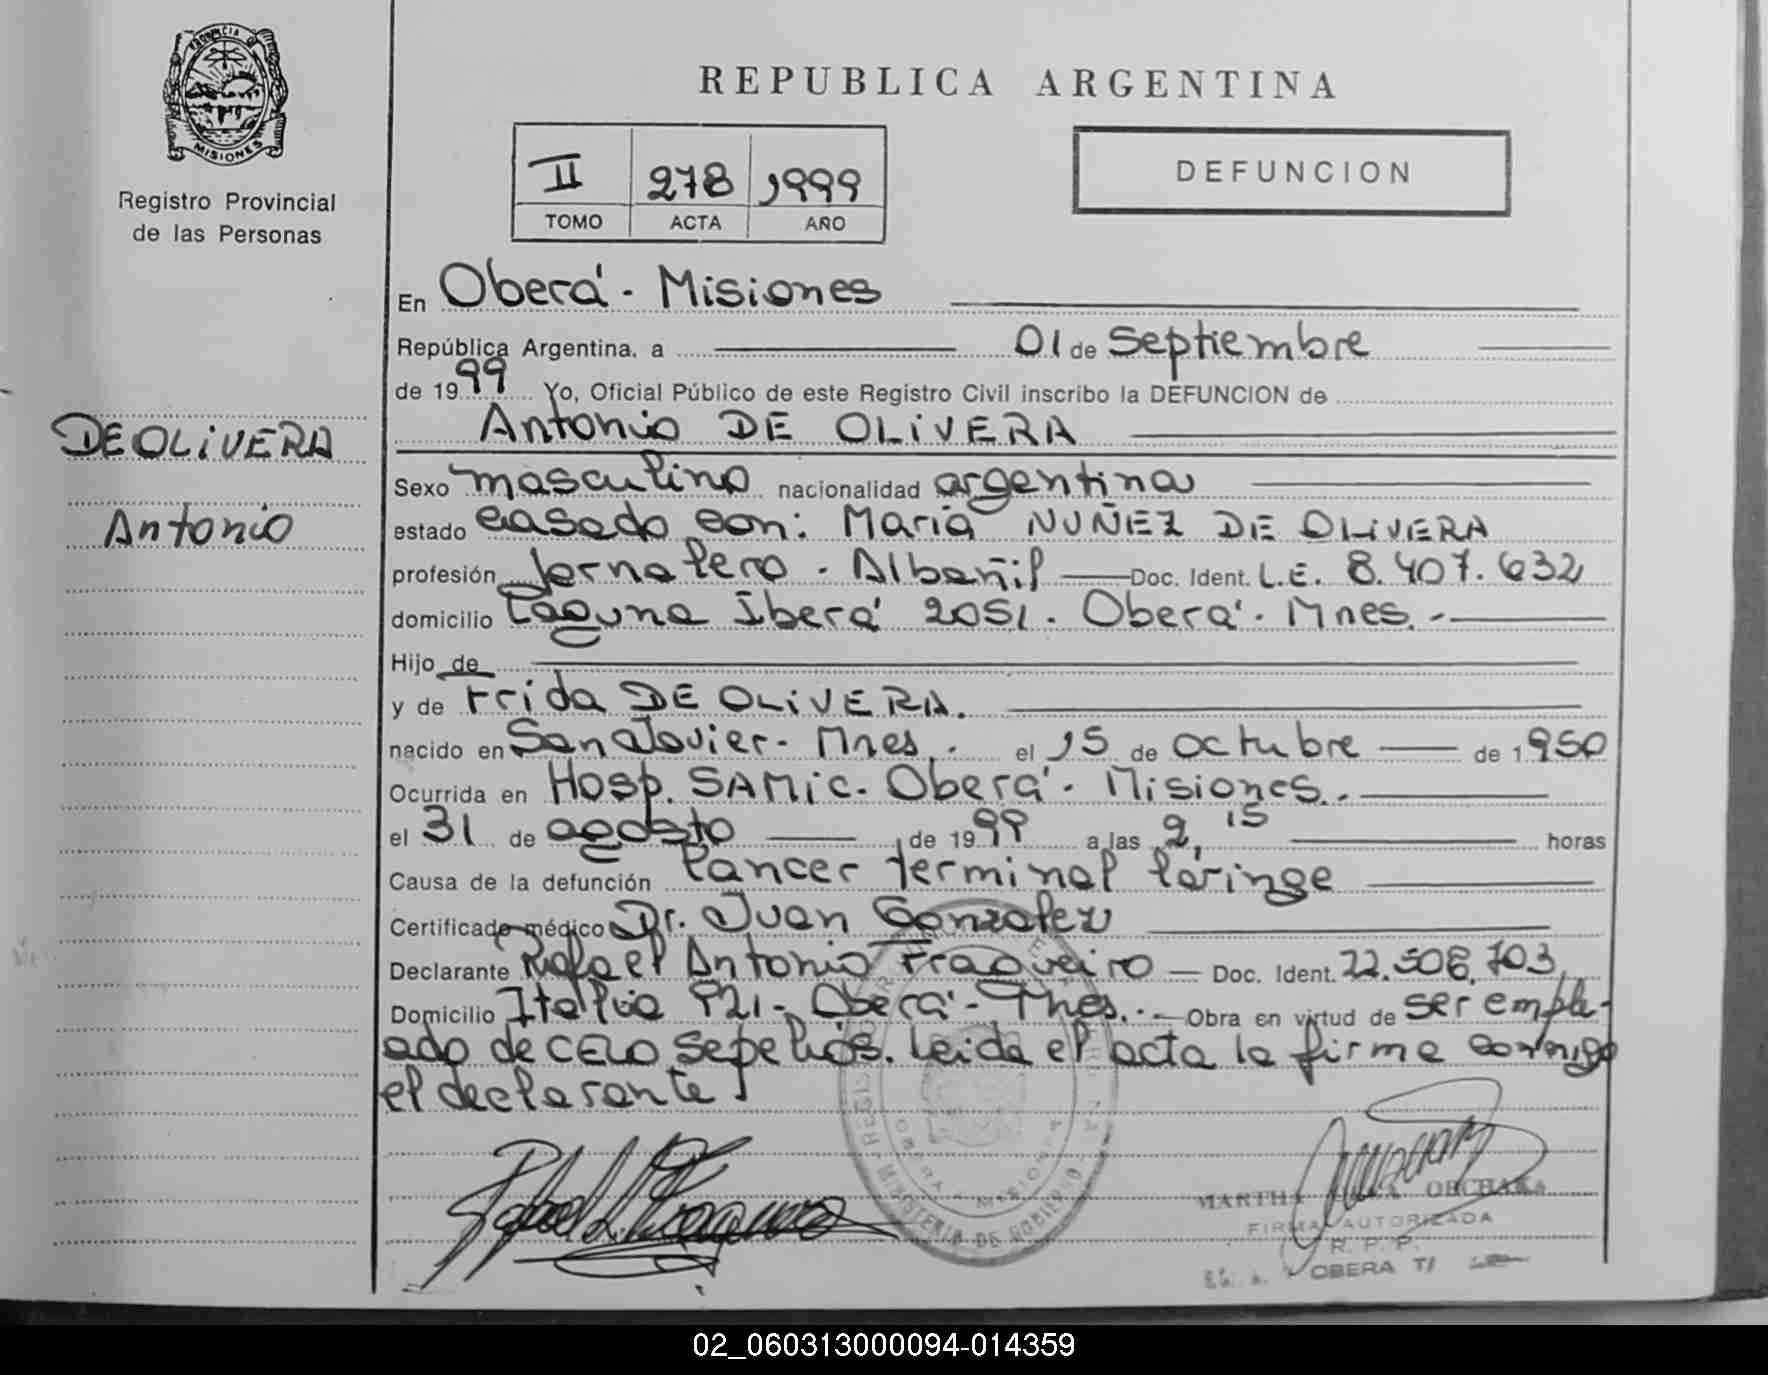 PROVINCIA
MISIONES
Registro Provincial
de las Personas
DE OLIVERA
Antonio
REPUBLICA ARGENTINA
II 278 1999
TOMO ACTA AÑO
DEFUNCION
En Oberá - Misiones
República Argentina, a 01 de Septiembre
de 1999 Yo, Oficial Público de este Registro Civil inscribo la DEFUNCION de
Antonio DE OLIVERA
Sexo masculino nacionalidad argentina
estado casado con: María NUÑEZ DE OLIVERA
profesión Jornalero - Albañil Doc. Ident. L.E. 8.407.632
domicilio Laguna Iberá 2051. Oberá - Mnes.-
Hijo de
y de Frida DE OLIVERA.
nacido en San Javier - Mnes. el 15 de octubre de 1950
Ocurrida en Hosp. SAMIC. Oberá - Misiones.-
el 31 de agosto de 1999 a las 2,15 horas
Causa de la defunción Cancer terminal laringe
Certificado médico Dr. Juan Gonzalez
Declarante Rafael Antonio Fraqueiro Doc. Ident. 22.506.703
Domicilio Italia - Oberá - Mnes.- Obra en virtud de ser emple-
ado de CELO Sepelios. Leida el acta la firma conmigo
el declarante
MINISTERIO DE GOBIERNO
OBERA - MISIONES
MARTHA
FIRMA AUTORIZADA
R. P. P.
OBERA
02_060313000094-014359